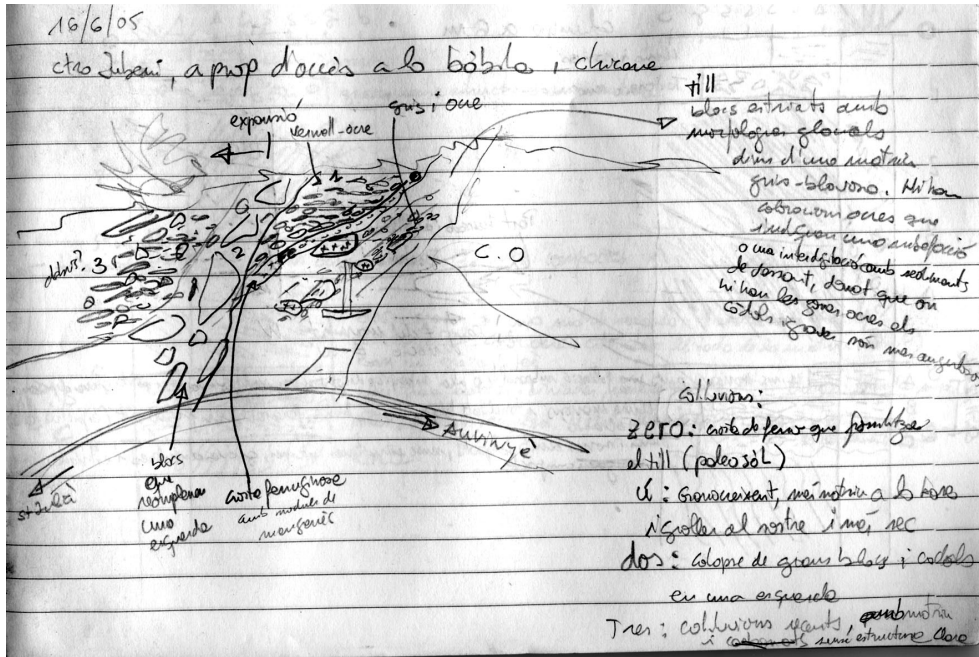 16/6/05
ctra Juberri, a prop d'accés a la bòbila i chicane
expansió
vermell-ocre
gris i ocre
till
blocs estriats amb
morfologies glacials
dins d'una matriu
gris-blavosa. Hi han
coloracions ocres que
indiquen una
o una interdigitació amb sediments
de vessant, donat que on
hi han les graves ocres els
còdols i graves són més angulosos
3
2
1
0
C.O
Auvinyà
St Julià
blocs
que
reomplenen
una
esquerda
crosta ferruginosa
amb nòduls de
manganès
col·luvions:
zero: crosta de ferro que fossilitza
el till (paleosòl)
ú: Granocreixent, més matriu a la base
i groller al sostre i més sec
dos: col·lapse de grans blocs i còdols
en una esquerda
Tres: col·luvions recents, amb matriu
i sense estructura clara